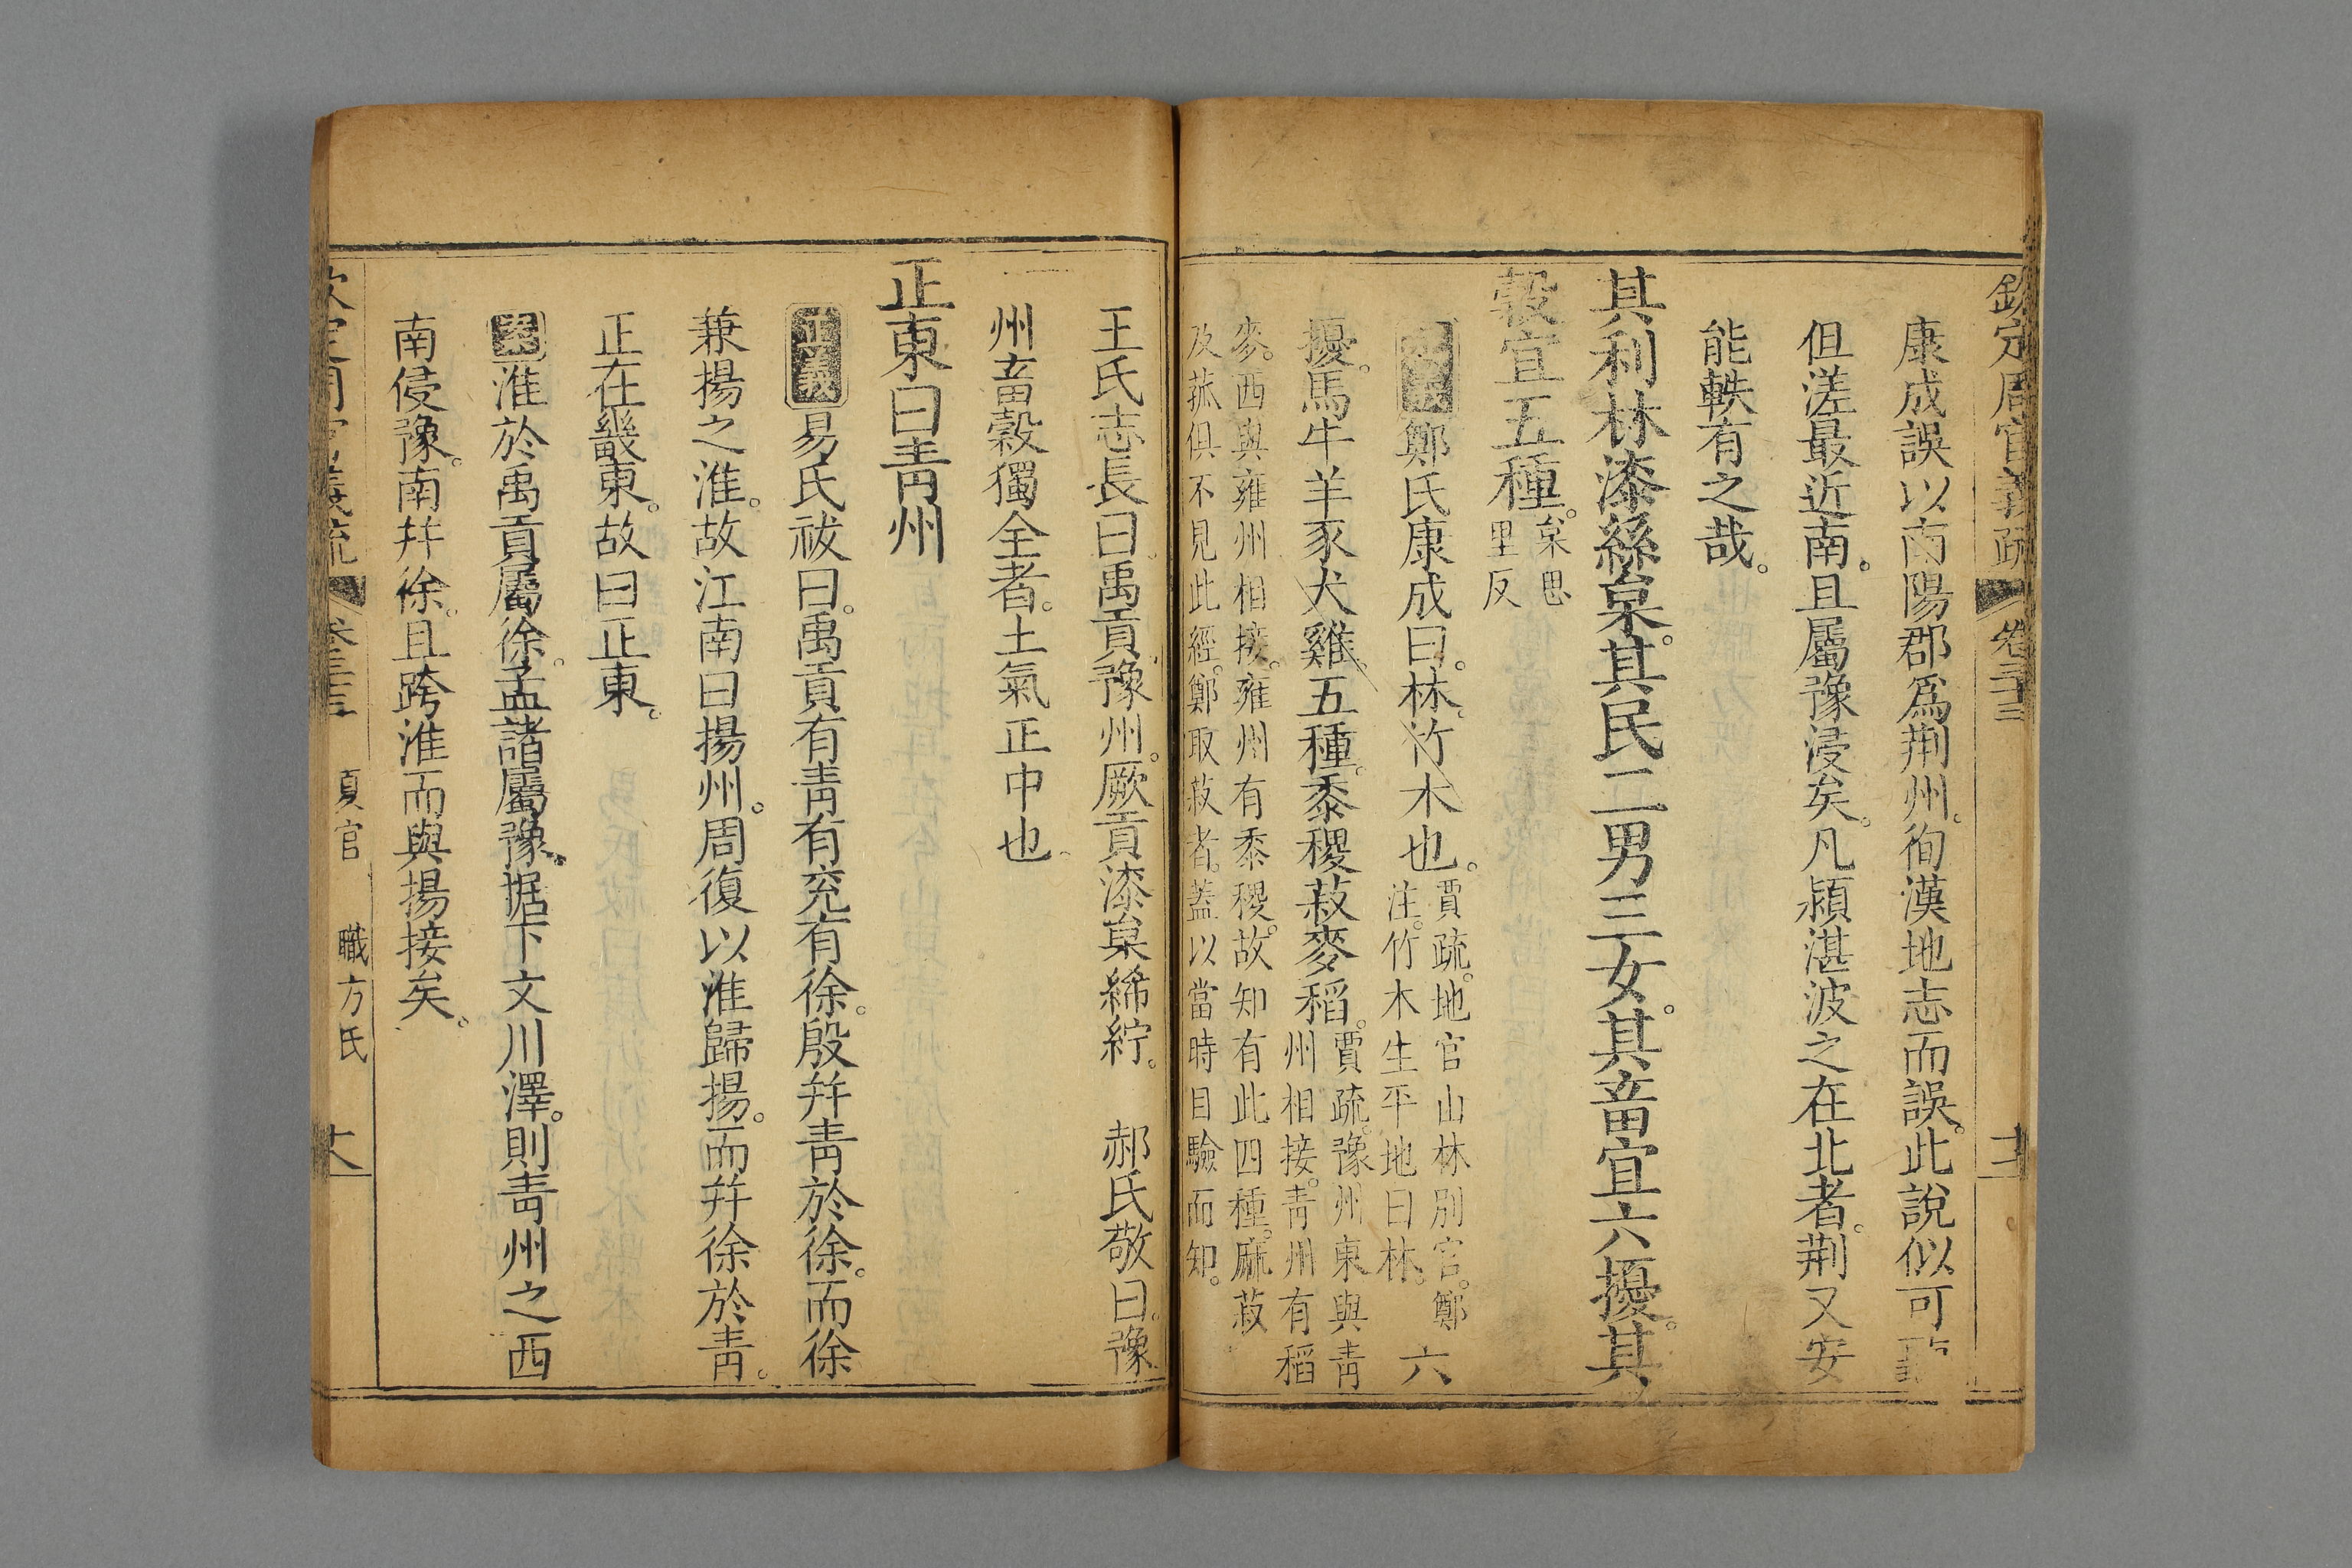 欽定周官義疏 卷三十三
康成誤以南陽郡爲荆州。徇漢地志而誤。此說似可
但溠最近南。且屬豫浸矣。凡潁湛波之在北者。荆又安
能軼有之哉。
其利林漆絲枲。其民二男三女。其畜宜六擾。其
穀宜五種。枲思里反
鄭氏康成曰。林。竹木也。賈疏。地官山林別官。鄭注。竹木生平地曰林。六
擾。馬牛羊豕犬雞。五種。黍稷菽麥稻。賈疏。豫州東與青州相接。青州有稻
麥。西與雍州相接。雍州有黍稷。故知有此四種。麻菽
及菰俱不見此經。鄭取菽者。蓋以當時目驗而知。
王氏志長曰。禹貢豫州。厥貢漆枲絺紵。 郝氏敬曰。豫
州畜穀獨全者。土氣正中也
正東曰青州
正義易氏祓曰。禹貢有青有兗有徐。殷并青於徐。而徐
兼揚之淮。故江南曰揚州。周復以淮歸揚。而并徐於青。
正在畿東。故曰正東。
案淮於禹貢屬徐。孟諸屬豫。据下文川澤。則青州之西
南侵豫。南并徐。且跨淮而與揚接矣。
欽定周官義疏 卷三十三 夏官 職方氏